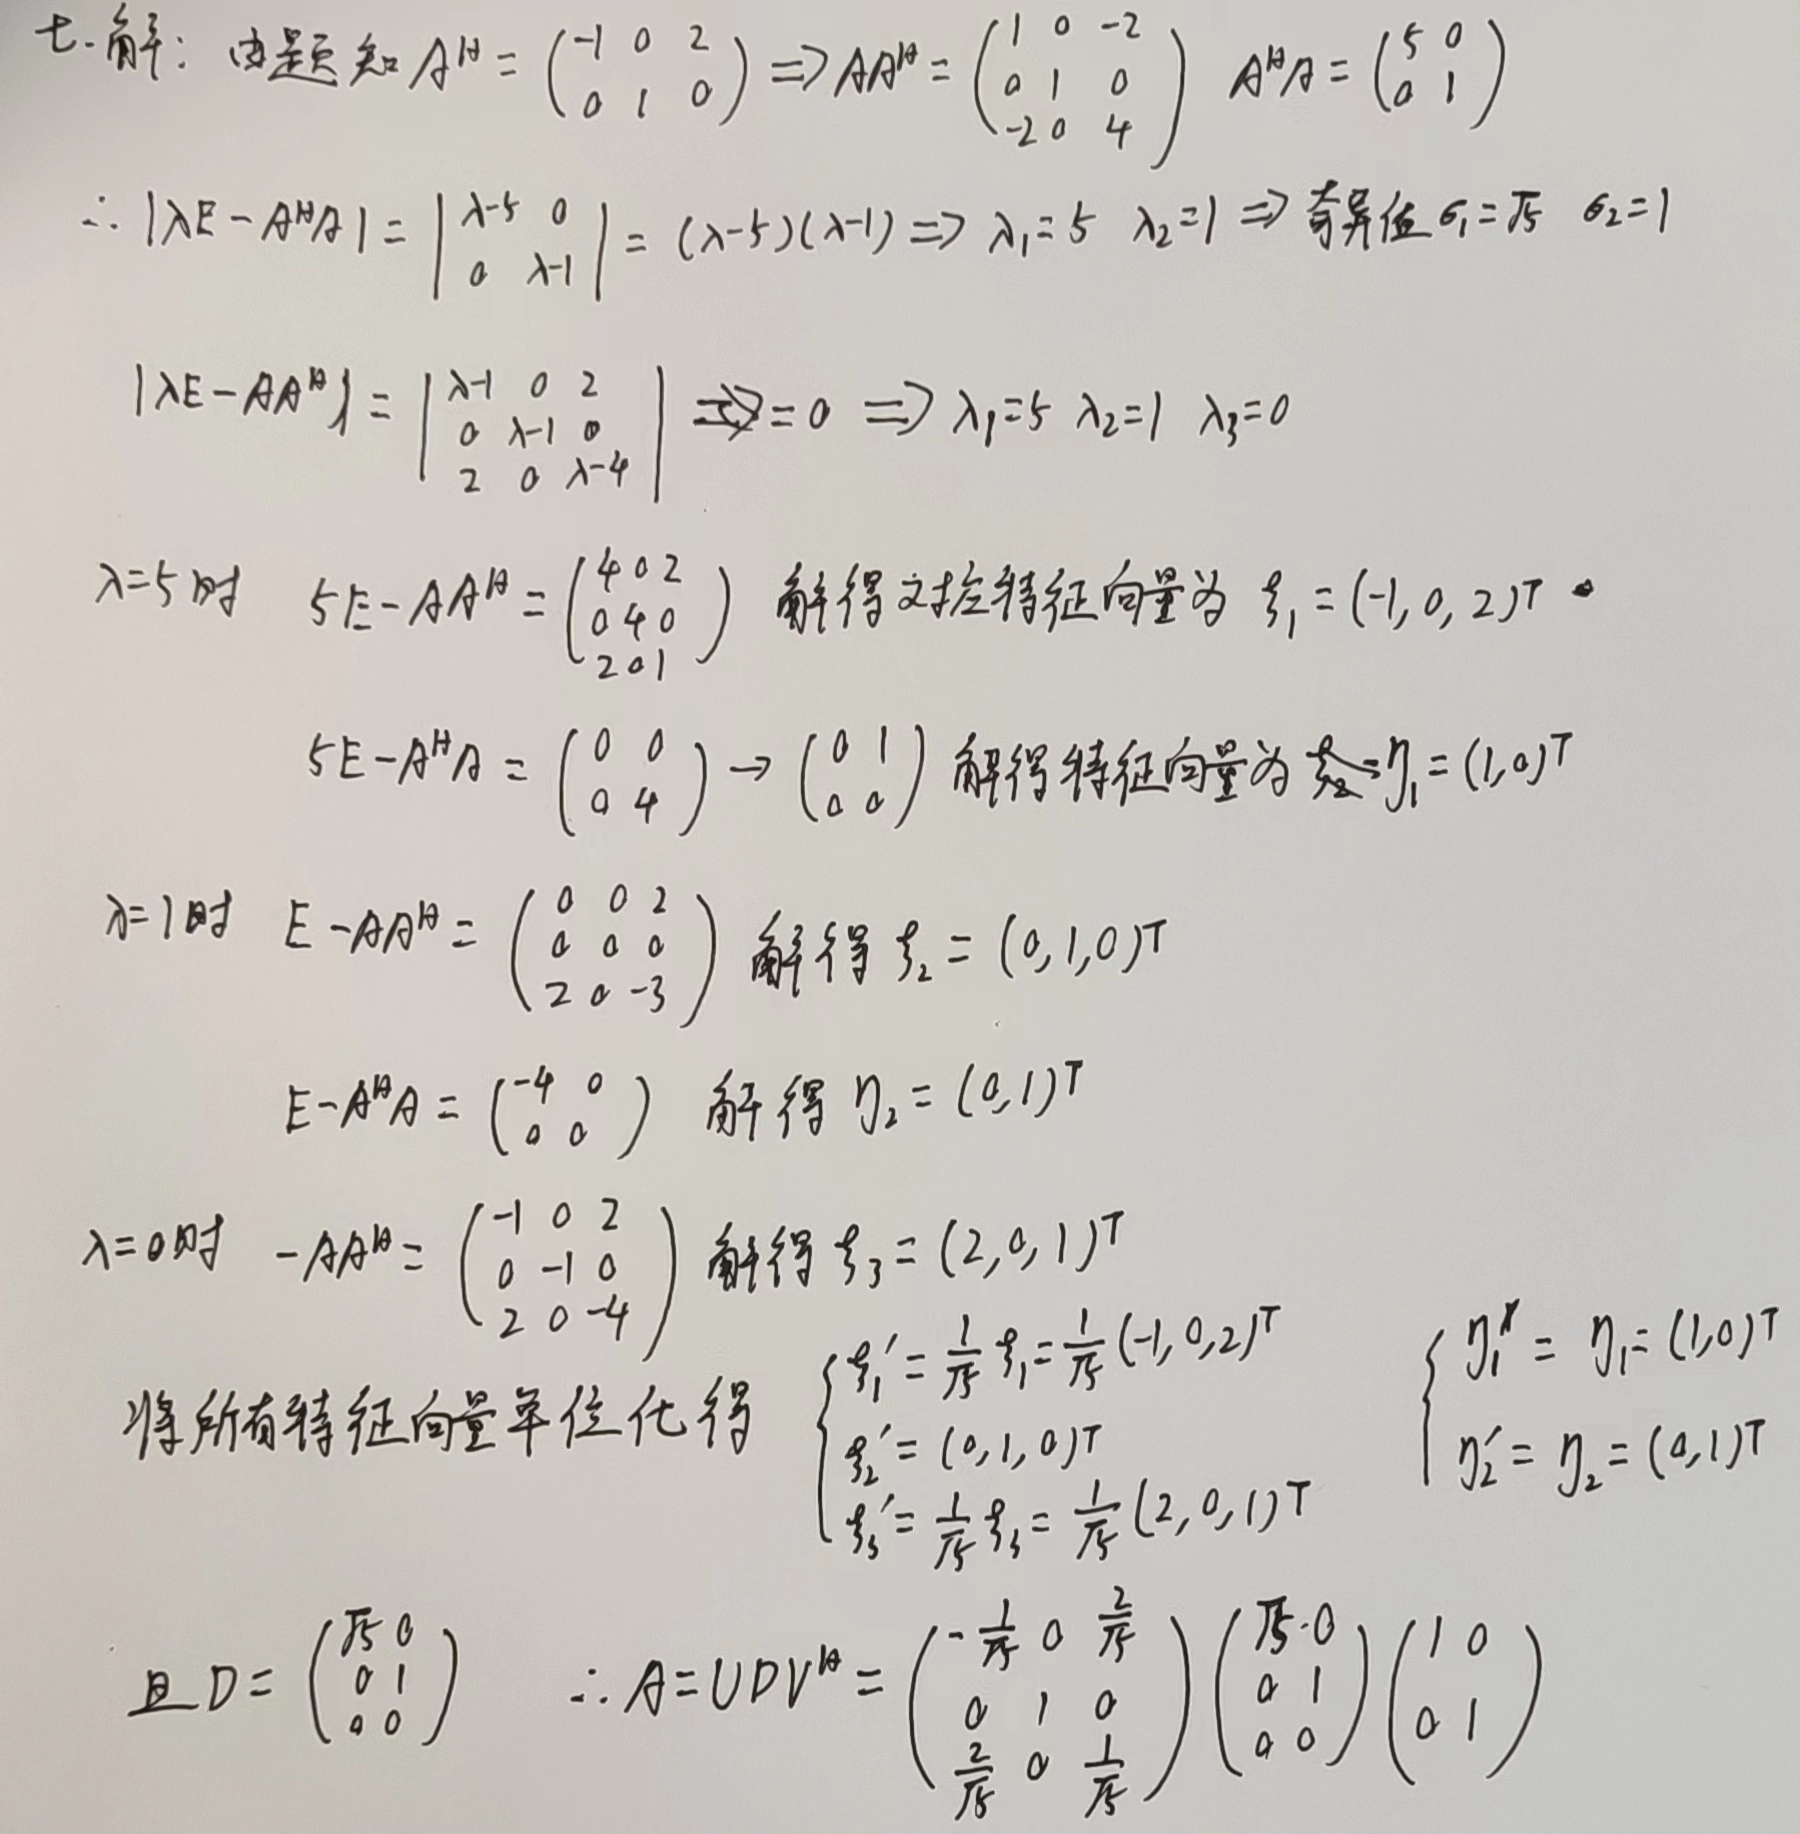 七.解: 由题知 A^H = (-1 0 2; 0 1 0) ⇒ AA^H = (1 0 -2; 0 1 0; -2 0 4) A^HA = (5 0; 0 1)
∴ |λE - A^HA| = |λ-5 0; 0 λ-1| = (λ-5)(λ-1) ⇒ λ₁=5 λ₂=1 ⇒ 奇异值 σ₁=√5 σ₂=1
|λE - AA^H| = |λ-1 0 2; 0 λ-1 0; 2 0 λ-4| = 0 ⇒ λ₁=5 λ₂=1 λ₃=0
λ=5时 5E - AA^H = (4 0 2; 0 4 0; 2 0 1) 解得对应特征向量为 ξ₁ = (-1, 0, 2)^T
5E - A^HA = (0 0; 0 4) → (0 1; 0 0) 解得特征向量为 η₁ = (1,0)^T
λ=1时 E - AA^H = (0 0 2; 0 0 0; 2 0 -3) 解得 ξ₂ = (0,1,0)^T
E - A^HA = (-4 0; 0 0) 解得 η₂ = (0,1)^T
λ=0时 -AA^H = (-1 0 2; 0 -1 0; 2 0 -4) 解得 ξ₃ = (2,0,1)^T
将所有特征向量单位化得 { ξ₁' = 1/√5 ξ₁ = 1/√5 (-1,0,2)^T
ξ₂' = (0,1,0)^T
ξ₃' = 1/√5 ξ₃ = 1/√5 (2,0,1)^T
{ η₁' = η₁ = (1,0)^T
η₂' = η₂ = (0,1)^T
且 D = (√5 0; 0 1; 0 0) ∴ A = UDV^H = (-1/√5 0 2/√5; 0 1 0; 2/√5 0 1/√5) (√5 0; 0 1; 0 0) (1 0; 0 1)